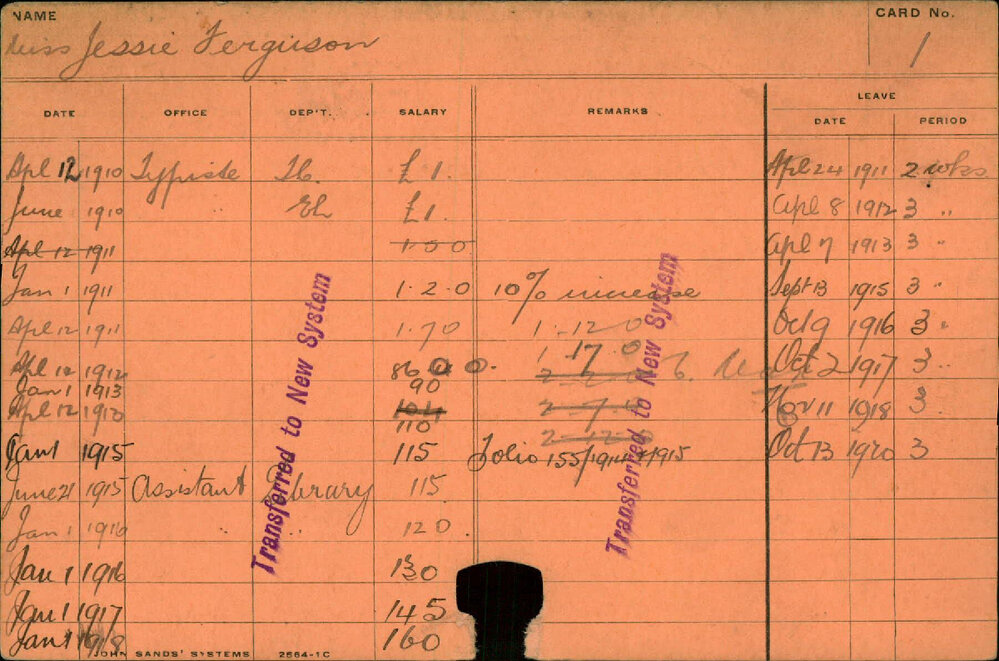 NAME
CARD No.
Miss Jessie Ferguson
1
LEAVE
DATE OFFICE DEP'T. SALARY REMARKS DATE PERIOD
Apl 12 1910 Typiste £1. Apl 24 1911 2 wks
June 1910 £1 Apl 8 1912 3 "
Apl 12 1911 1 5 0 Apl 7 1913 3 "
Jan 1 1911 1. 2. 0 10% increase Sept 13 1915 3 "
Apl 12 1911 1. 7 0 1. 12 0 Oct 9 1916 3 "
1 17 0
Apl 12 1912 86 0 0. Oct 2 1917 3 "
Jan 1 1913 90
Apl 12 1913 104 2 7 0 Nov 11 1918 3
110 2 12 0
Jan 1 1915 115 Folio 155/1914 1915 Oct 13 1920 3
June 21 1915 Assistant Library 115
Jan 1 1916 " " 120
Jan 1 1916 130
Jan 1 1917 145
Jan 1 1918 160
Transferred to New System
Transferred to New System
JOHN SANDS' SYSTEMS 2564-1C